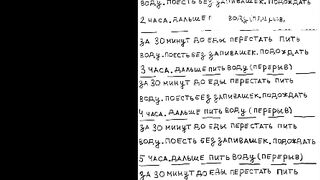 ВОДУ. ПОЕСТЬ БЕЗ ЗАПИВАШЕК. ПОДОЖДАТЬ
2 ЧАСА. ДАЛЬШЕ П ВОДУ
ЗА 30 МИНУТ ДО ЕДЫ ПЕРЕСТАТЬ ПИТЬ
ВОДУ. ПОЕСТЬ БЕЗ ЗАПИВАШЕК. ПОДОЖДАТЬ
3 ЧАСА. ДАЛЬШЕ ПИТЬ ВОДУ (ПЕРЕРЫВ)
ЗА 30 МИНУТ ДО ЕДЫ ПЕРЕСТАТЬ ПИТЬ
ВОДУ. ПОЕСТЬ БЕЗ ЗАПИВАШЕК. ПОДОЖДАТЬ
4 ЧАСА. ДАЛЬШЕ ПИТЬ ВОДУ (ПЕРЕРЫВ)
ЗА 30 МИНУТ ДО ЕДЫ ПЕРЕСТАТЬ ПИТЬ
ВОДУ. ПОЕСТЬ БЕЗ ЗАПИВАШЕК. ПОДОЖДАТЬ
5 ЧАСА. ДАЛЬШЕ ПИТЬ ВОДУ (ПЕРЕРЫВ)
ЗА 30 МИНУТ ДО ЕДЫ ПЕРЕСТАТЬ ПИТЬ